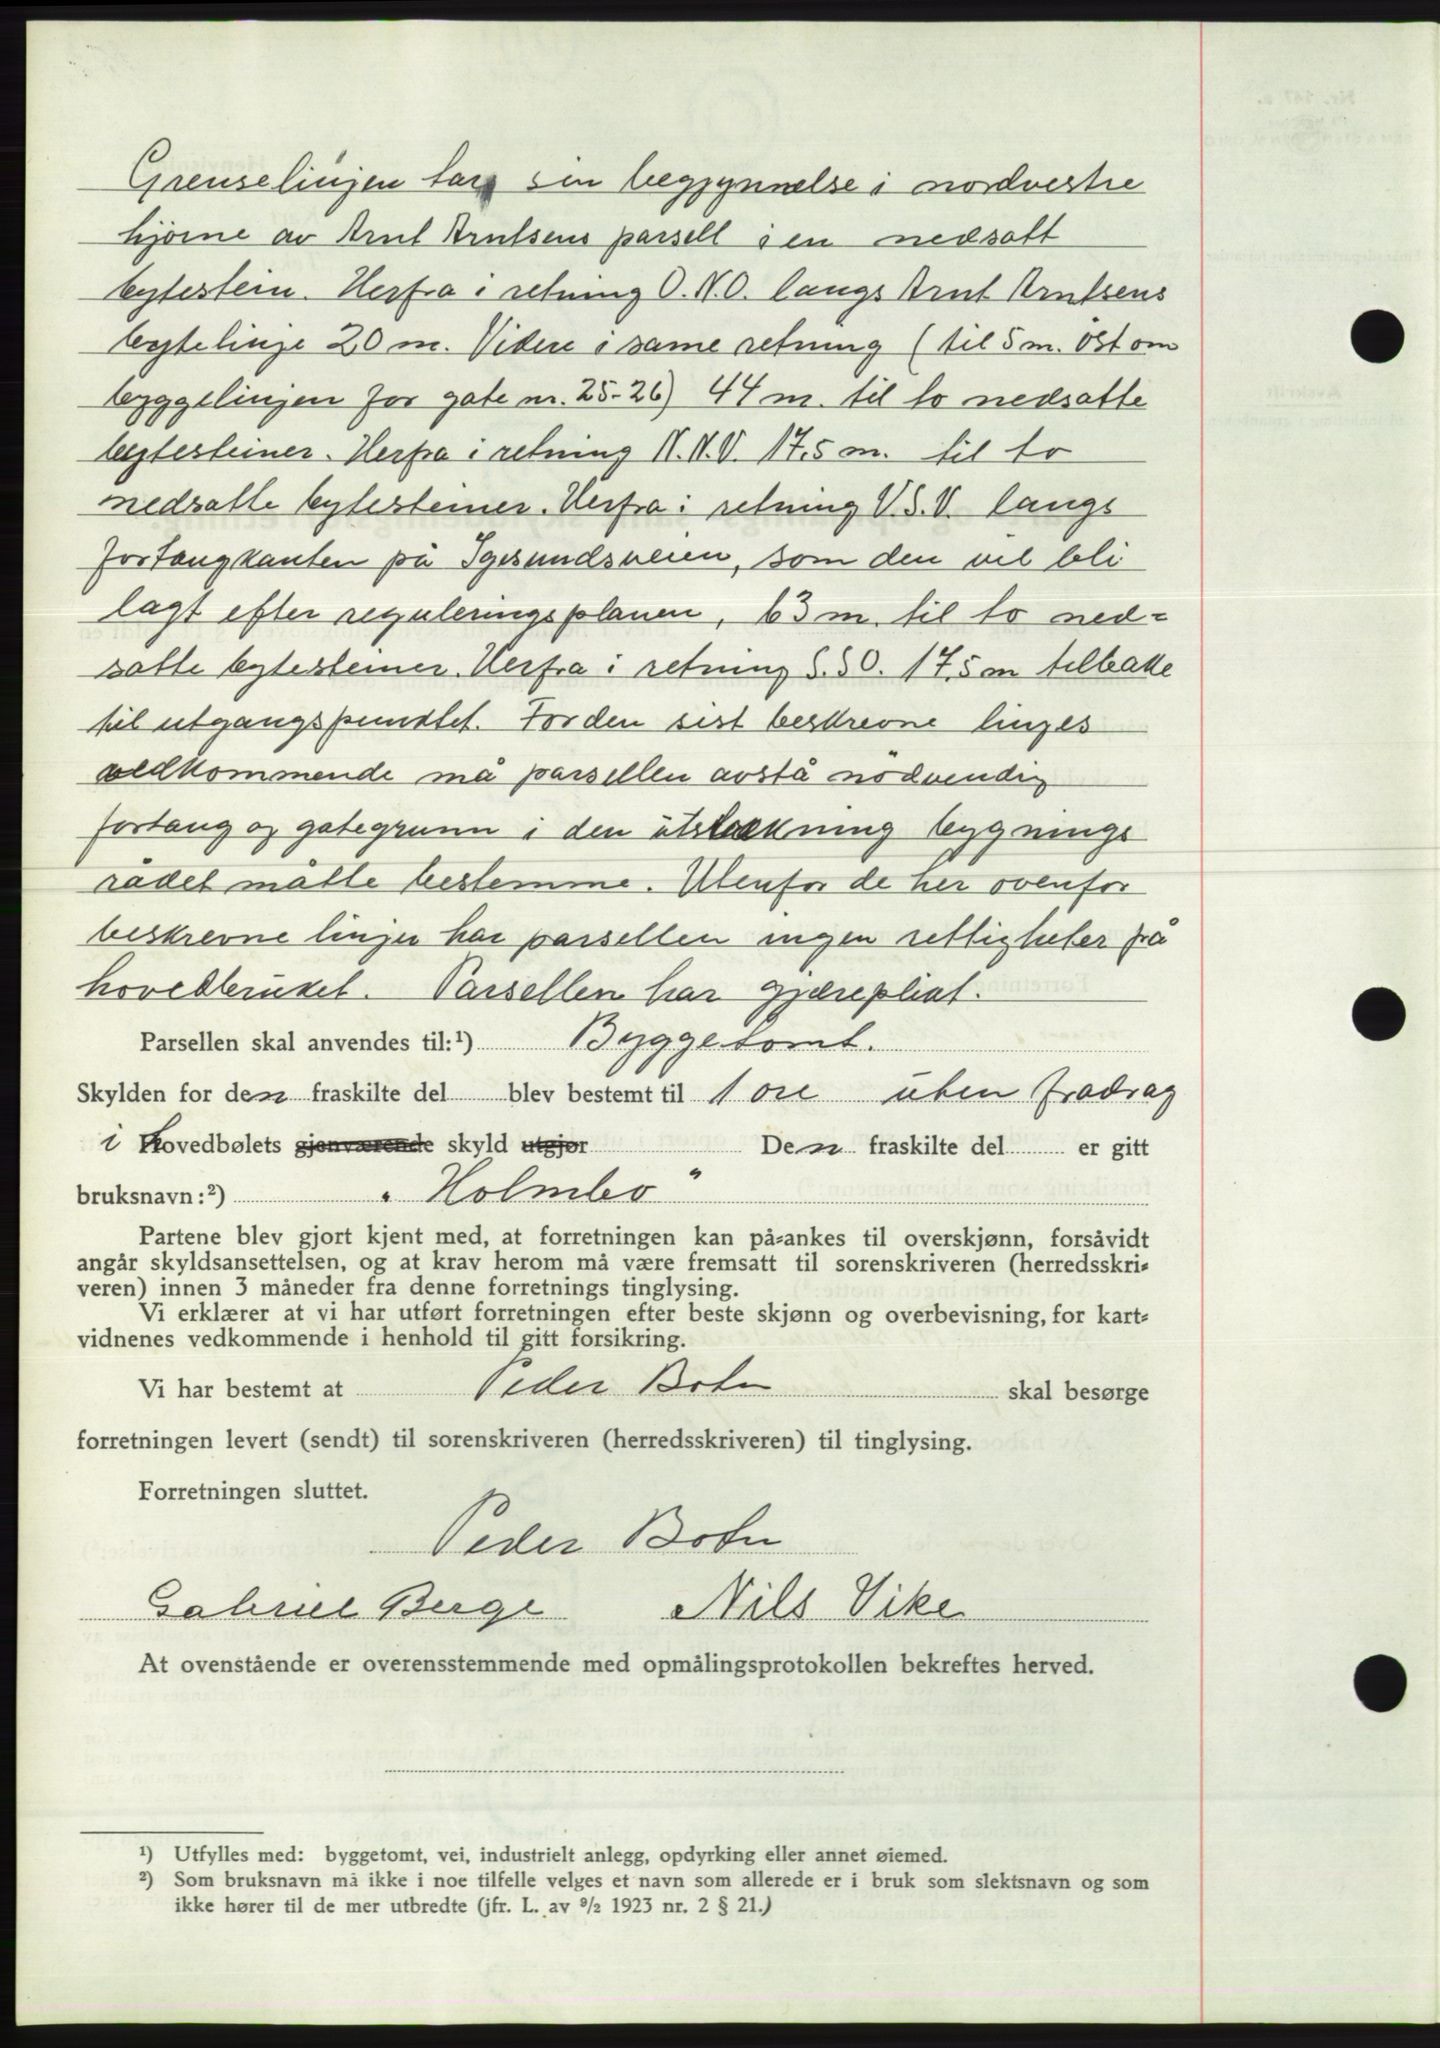 Grenselinjen tar sin begjynnelse i nordvestre
hjörne av Arnt Arntsens parsell i en nedsatt
bytestein. Herfra i retning O.N.O. langs Arnt Arntsens
bytelinje 20 m. Videre i same retning (til 5 m. öst om
byggelinjen for gate nr. 25-26) 44 m. til to nedsatte
bytesteiner. Herfra i retning N.N.V. 17,5 m. til to
nedsatte bytesteiner. Herfra i retning V.S.V. langs
fortaugkanten på Igesundsveien, som den vil bli
lagt efter reguleringsplanen, 63 m. til to ned=
satte bytesteiner. Herfra i retning S.S.O. 17,5 m tilbake
til utgangspunktet. For den sist beskrevne linjes
vedkommende må parsellen avstå nödvendig
fortaug og gategrunn i den utstrekning bygnings
rådet måtte bestemme. Utenfor de her ovenfor
beskrevne linjer har parsellen ingen rettigheter på
hovedbruket. Parsellen har gjærepliat.
Parsellen skal anvendes til:¹) Byggetomt.
Skylden for den fraskilte del blev bestemt til 1 öre uten fradrag
i hovedbølets gjenværende skyld utgjør Den fraskilte del er gitt
bruksnavn:²) "Holmbo"
Partene blev gjort kjent med, at forretningen kan på=ankes til overskjønn, forsåvidt
angår skyldsansettelsen, og at krav herom må være fremsatt til sorenskriveren (herredsskri=
veren) innen 3 måneder fra denne forretnings tinglysing.
Vi erklærer at vi har utført forretningen efter beste skjønn og overbevisning, for kart=
vidnenes vedkommende i henhold til gitt forsikring.
Vi har bestemt at Peder Botn skal besørge
forretningen levert (sendt) til sorenskriveren (herredsskriveren) til tinglysing.
Forretningen sluttet.
Peder Botn
Gabriel Berge Nils Vike
At ovenstående er overensstemmende med opmålingsprotokollen bekreftes herved.
¹) Utfylles med: byggetomt, vei, industrielt anlegg, opdyrking eller annet øiemed.
²) Som bruksnavn må ikke i noe tilfelle velges et navn som allerede er i bruk som slektsnavn og som
ikke hører til de mer utbredte (jfr. L. av 9/2 1923 nr. 2 § 21.)